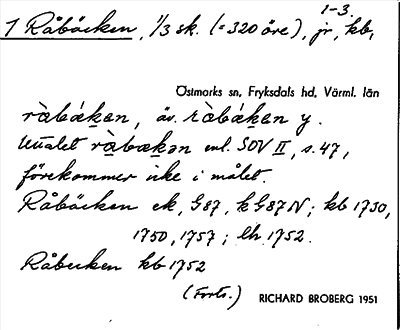 1-3.
1 Råbäcken, 1/3 sk. (= 320 öre), jr, kb,
Östmarks sn, Fryksdals hd, Värml. län
ràbákən, äv. ràbákən y.
Uttalet ràbækən enl. SOV II, s. 47,
förekommer icke i målet
Råbäcken ek, G87, kG87N; kb 1730,
1750, 1757; lh 1752.
Råbecken kb 1752
(Forts.) RICHARD BROBERG 1951